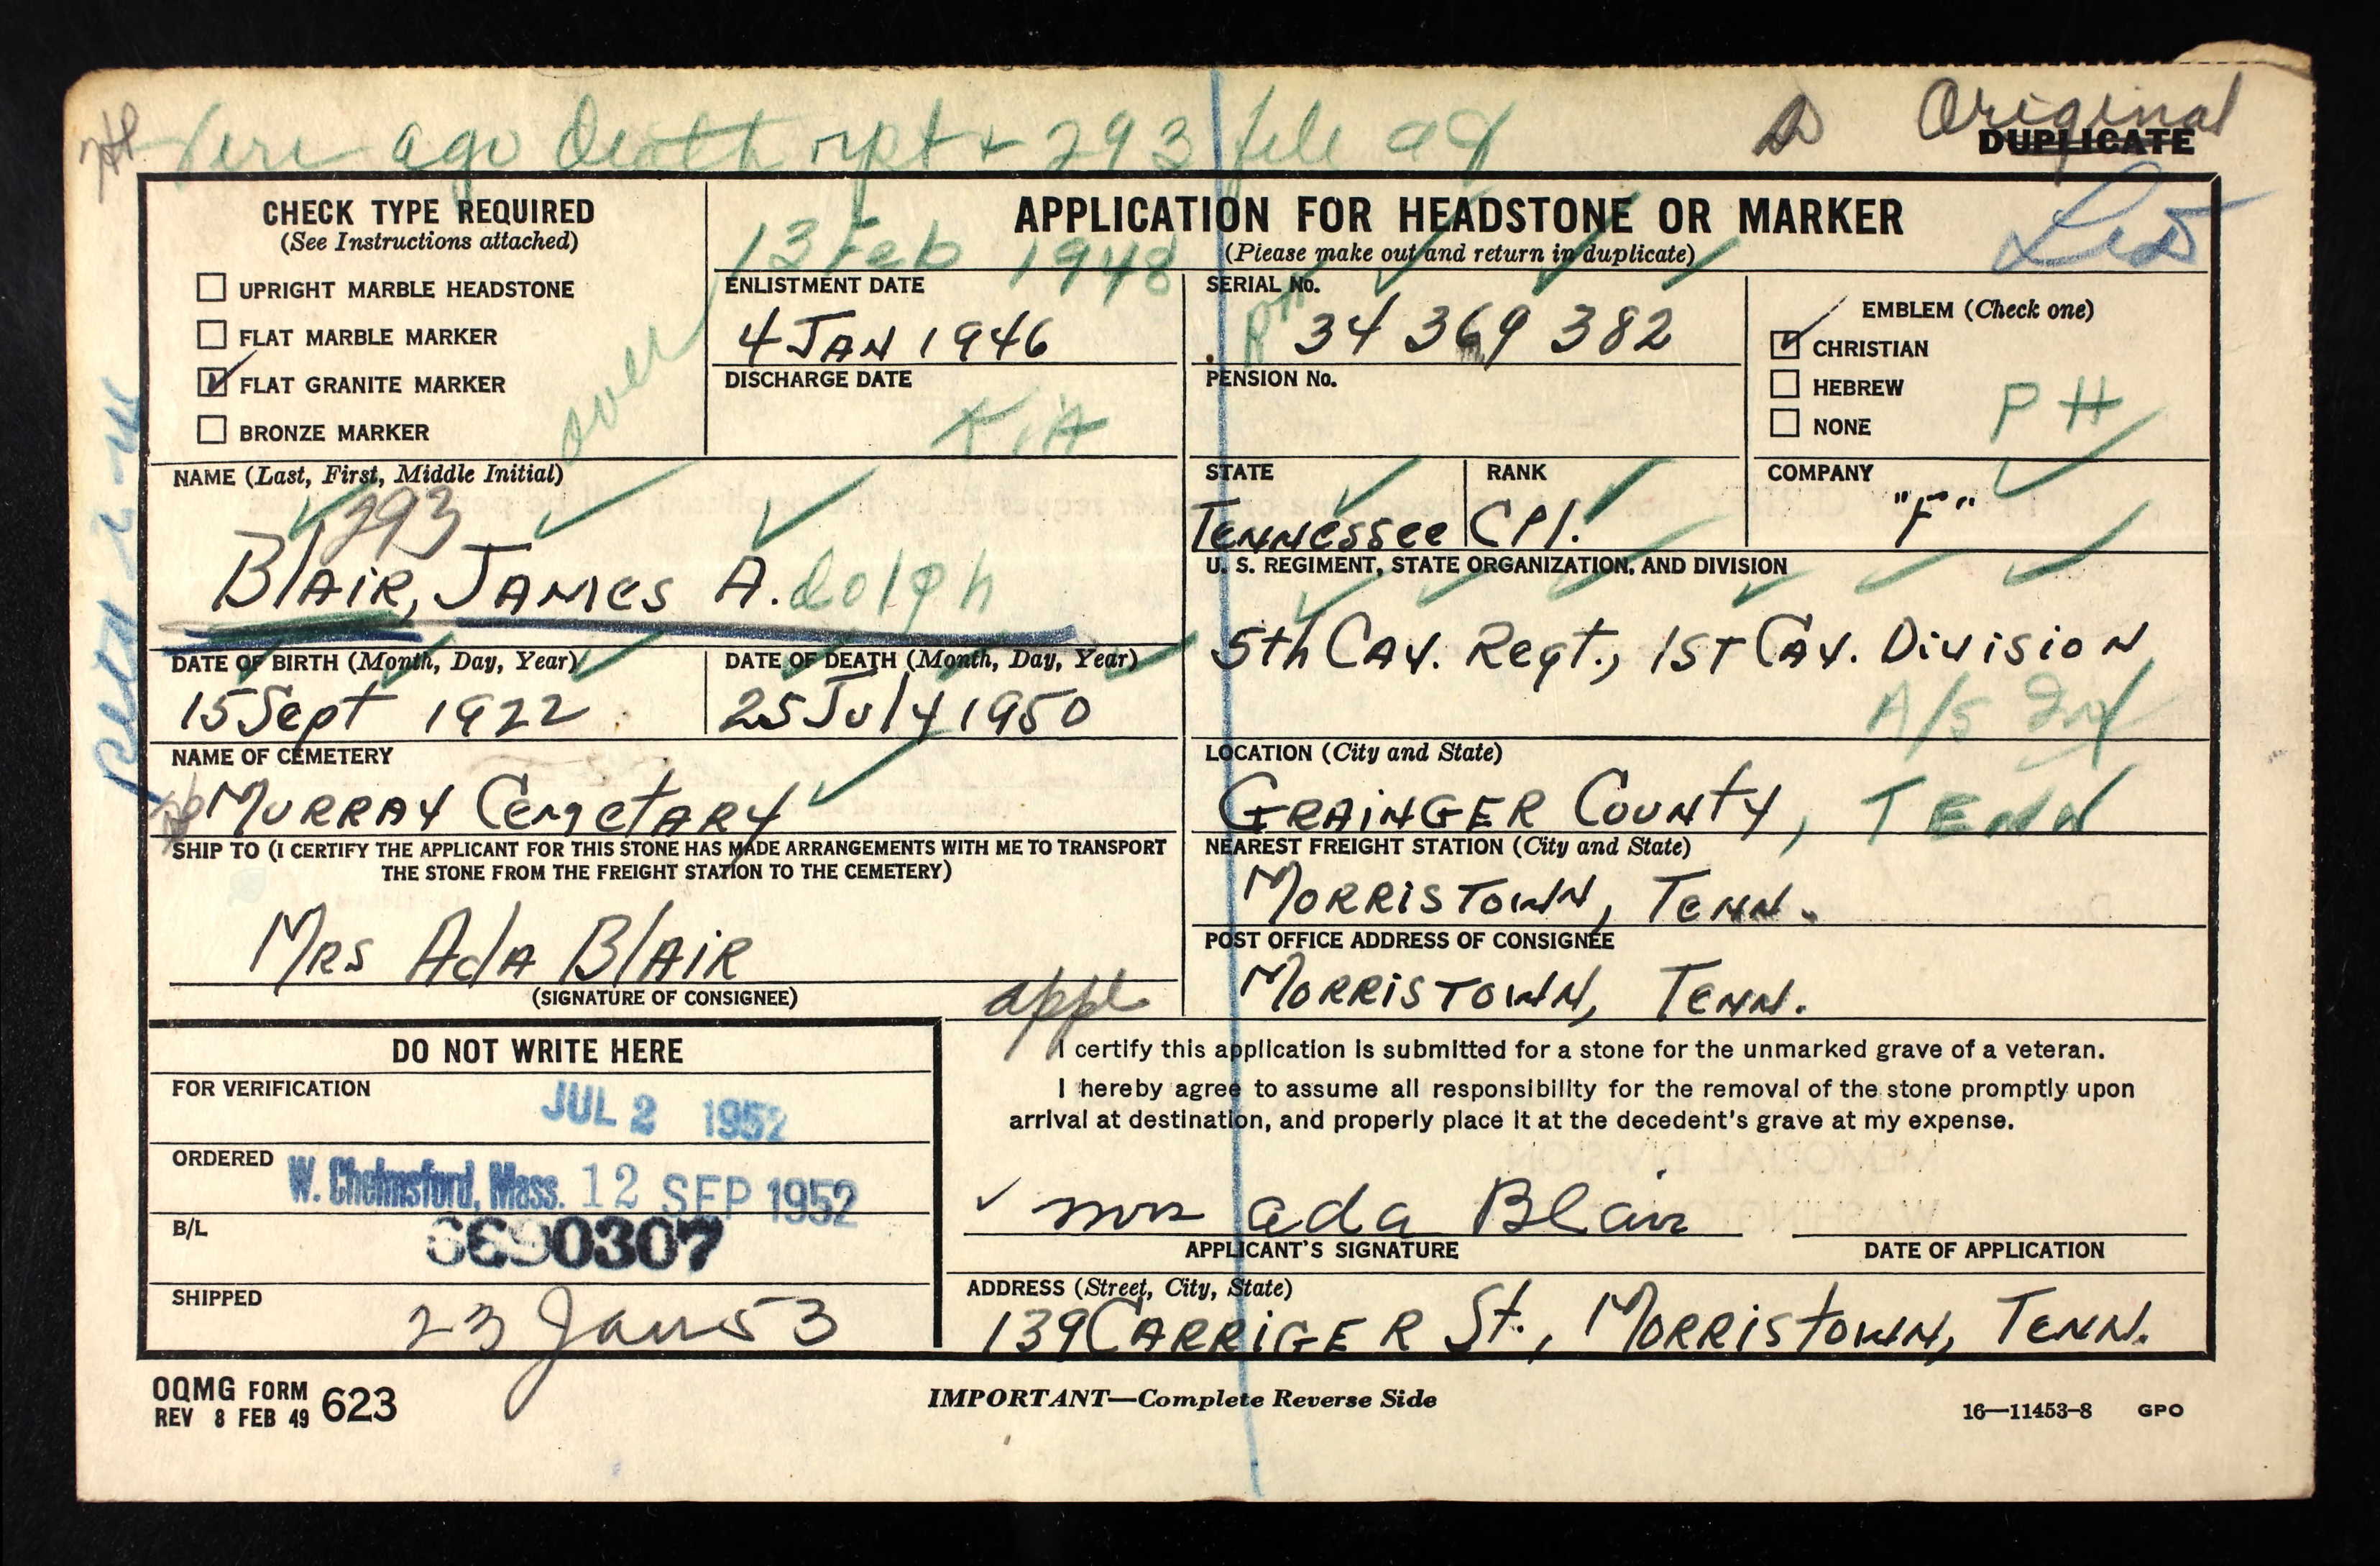 Veri ago Death rpt + 293 file
Original
DUPLICATE
CHECK TYPE REQUIRED
(See Instructions attached)
UPRIGHT MARBLE HEADSTONE
FLAT MARBLE MARKER
FLAT GRANITE MARKER
BRONZE MARKER
over
13 Feb 1948
ENLISTMENT DATE
4 JAN 1946
DISCHARGE DATE
KIA
APPLICATION FOR HEADSTONE OR MARKER
(Please make out and return in duplicate)
SERIAL No.
RA 34 369 382
PENSION No.
EMBLEM (Check one)
CHRISTIAN
HEBREW
NONE
PH
NAME (Last, First, Middle Initial)
293
BLAIR, JAMES A.dolph
STATE
TENNESSEE
RANK
CPl.
COMPANY
"F"
U. S. REGIMENT, STATE ORGANIZATION, AND DIVISION
5th CAV. Regt., 1ST CAV. DIVISION
A/S Inf
DATE OF BIRTH (Month, Day, Year)
15 Sept 1922
DATE OF DEATH (Month, Day, Year)
25 July 1950
NAME OF CEMETERY
MURRAY CEMETARY
LOCATION (City and State)
GRAINGER COUNTY, TENN
SHIP TO (I CERTIFY THE APPLICANT FOR THIS STONE HAS MADE ARRANGEMENTS WITH ME TO TRANSPORT
THE STONE FROM THE FREIGHT STATION TO THE CEMETERY)
MRS AdA BlAIR
(SIGNATURE OF CONSIGNEE)
appl
NEAREST FREIGHT STATION (City and State)
MORRISTOWN, TENN.
POST OFFICE ADDRESS OF CONSIGNEE
MORRISTOWN, TENN.
DO NOT WRITE HERE
FOR VERIFICATION
JUL 2 1952
ORDERED
W. Chelmsford, Mass. 12 SEP 1952
B/L
6690307
SHIPPED
23 Jan 53
I certify this application is submitted for a stone for the unmarked grave of a veteran.
I hereby agree to assume all responsibility for the removal of the stone promptly upon
arrival at destination, and properly place it at the decedent's grave at my expense.
mrs ada Blair
APPLICANT'S SIGNATURE
DATE OF APPLICATION
ADDRESS (Street, City, State)
139 CARRIGER St., MORRISTOWN, TENN.
OQMG FORM 623
REV 8 FEB 49
IMPORTANT—Complete Reverse Side
16—11453-8 GPO